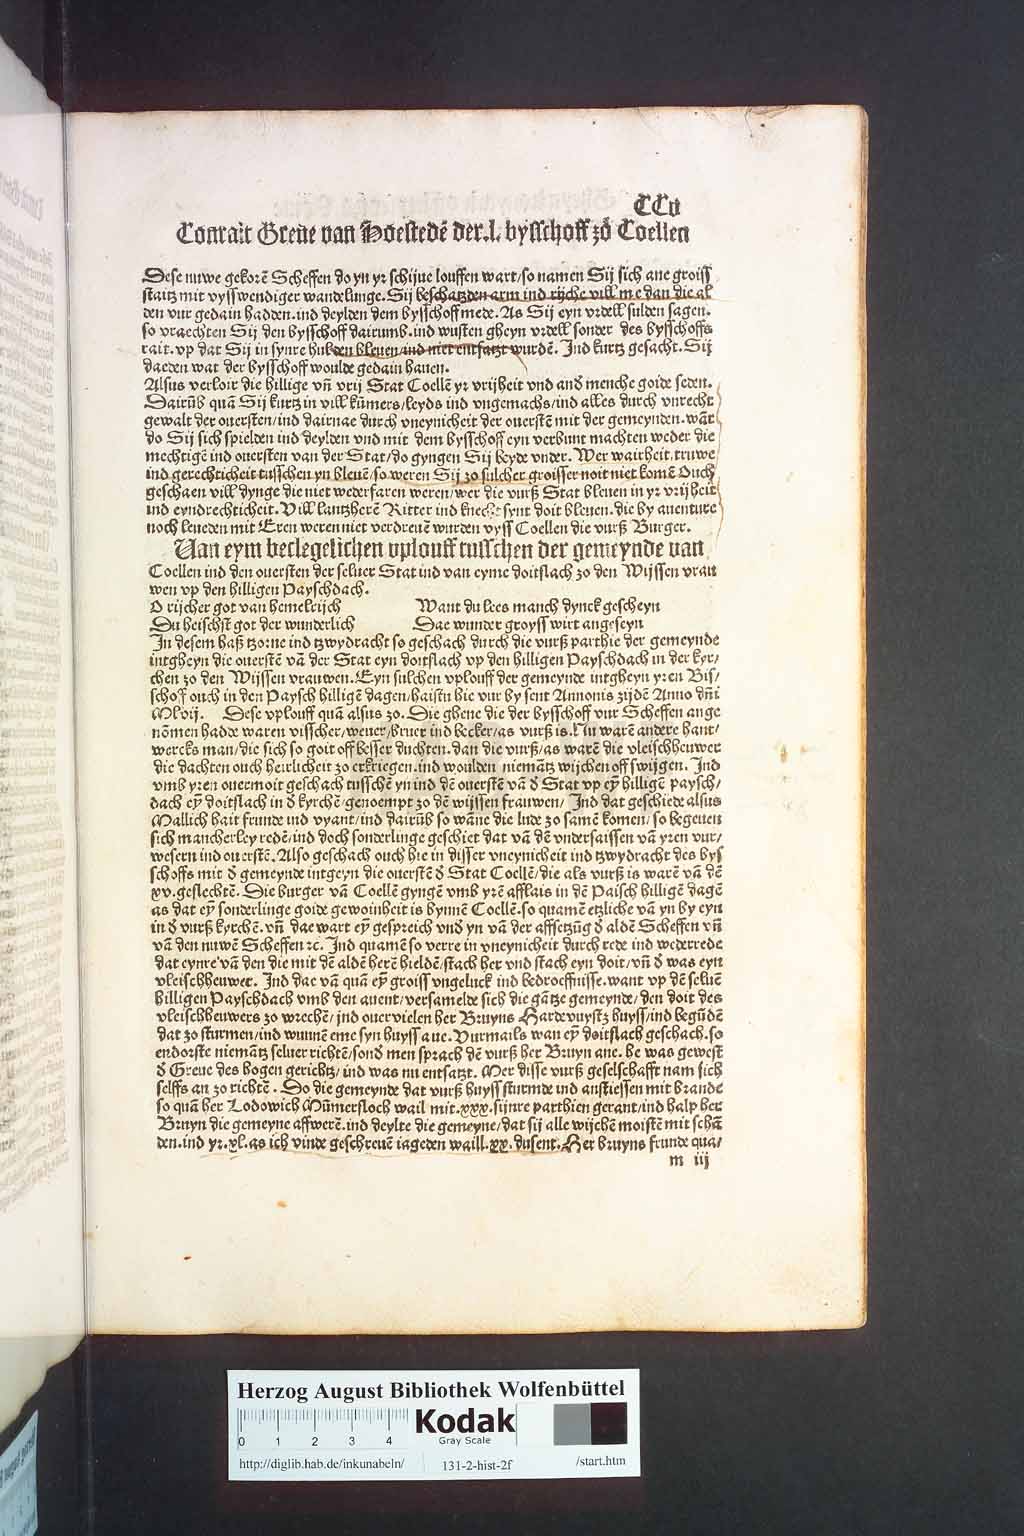 CCv
Conrait Greue van Hoestedē der .l. bysschoff zo Coellen
Dese nuwe gekorē Scheffen do yn yr schijue louffen wart/so namen Sij sich ane groiss
staitz mit vysswendiger wandelunge. Sij beschatzden arm ind rijche vill me dan die al
den vur gedain hadden.ind deylden dem bysschoff mede. As Sij eyn vrdell sulden sagen.
so vraechten Sij den bysschoff dairumb.ind wusten gheyn vrdell sonder des bysschoffs
rait. vp dat Sij in synre hulden bleuen/ind niet entsatzt wurdē. Ind kurtz gesacht. Sij
daeden wat der bysschoff woulde gedain hauen.
Alsus verloir die hillige vñ vrij Stat Coellē yr vrijheit vnd and menche goide seden.
Dairūb quā Sij kurtz in vill kūmers/leyds ind vngemachs/ind alles durch vnrecht
gewalt der ouersten/ind dairnae durch vneynicheit der ouerstē mit der gemeynden. want
do Sij sich spielden ind deylden vnd mit dem bysschoff eyn verbunt machten weder die
mechtigen ind ouersten van der Stat/do gyngen Sij beyde vnder. Wer wairheit truwe
ind gerechticheit tusschen yn bleuē/so weren Sij zo sulcher groisser noit niet komē Ouch
geschaen vill dynge die niet wederfaren weren/wer die vurß Stat bleuen in yr vrijheit
ind eyndrechticheit. Vill lantzherē Ritter ind knecht synt doit bleuen.die by auenture
noch leueden mit Eren weren niet verdreuē wurden vyss Coellen die vurß Burger.
Uan eym beclegelichen vplouff tusschen der gemeynde van
Coellen ind den ouersten der seluer Stat ind van eyme doitslach zo den Wijssen vrau
wen vp den hilligen Payschdach.
O rijcher got van hemelrijch Want du lees manch dynck gescheyn
Du heischst got der wunderlich Dae wunder groyss wirt angeseyn
In desem haß tzorne ind tzwydracht so geschach durch die vurß parthie der gemeynde
intgheyn die ouerstē vā der Stat eyn doitslach vp den hilligen Payschdach in der kyr/
chen zo den Wijssen vrauwen. Eyn sulchen vplouff der gemeynde intgheyn yren Bis/
schoff ouch in den Paysch hilligē dagen/haistu hie vur by sent Annonis zijdē Anno dñi
Mlvij. Dese vplouff quā alsus zo. Die ghene die der bysschoff vur Scheffen ange
nōmen hadde waren visscher/weuer/bruer ind becker/as vurß is. Nu warē andere hant/
wercks man/die sich so goit off besser duchten.dan die vurß/as warē die vleischheuwer
die dachten ouch herlicheit zo erkriegen.ind woulden niemātz wijchen off swijgen. Ind
vmb yren ouermoit geschach tusschē yn ind dē ouerstē vā d Stat vp ey hilligē paysch/
dach ey doitslach in d kyrchē/genoempt zo dē wijssen frauwen/ Ind dat geschiede alsus
Mallich hait frunde ind vyant/ind dairūb so wāne die lude zo samē komen/so begeuen
sich mancherley redē/ind doch sonderlinge geschiet dat vā dē vndersaissen vā yren vur/
wesern ind ouerstē. Also geschach ouch hie in disser vneynicheit ind tzwydracht des bys
schoffs mit d gemeynde intgeyn die ouerstē d Stat Coellē/die als vurß is warē vā dē
xv.geslechtē. Die burger vā Coellē gyngē vmb yrē afflais in dē Paisch hilligē dagē
as dat ey sonderlinge goide gewoinheit is bynnē Coellē.so quamē etzliche vā yn by eyn
in d vurß kyrchē.vñ dae wart ey gespreich vnd yn vā der affsetzūg d aldē Scheffen vñ
vā den nuwē Scheffen zc. Ind quamē so verre in vneynicheit durch rede ind wederrede
dat eynre vā den die mit dē aldē herē hieldē/stach her vnd stach eyn doit/vñ d was eyn
vleischheuwer. Ind dae vā quā ey groiss vngeluck ind bedroeffnisse.want vp dē seluē
hilligen Payschdach vmb den auent/versamelde sich die gātze gemeynde/den doit des
vleischheuwers zo wrechē/ind ouervielen her Bruyns Hardevuystz huyss/ind begūdē
dat zo sturmen/ind wunnē eme syn huyss aue. Vurmails wan ey doitslach geschach.so
endorste niemātz seluer richtē/sond men sprach dē vurß her Bruyn ane. he was gewest
d Greue des hogen gerichtz/ind was nu entsatzt. Mer disse vurß geselschafft nam sich
selffs an zo richtē. Do die gemeynde dat vurß huyss sturmde ind anstiessen mit brande
so quā her Lodowich Mūmersloch wail mit.xxx.sijnre parthien gerant/ind halp her
Bruyn die gemeyne affwerē.ind deylte die gemeyne/dat sij alle wijchē moistē mit schā
den.ind yr.xl.as ich vinde geschreuē iageden waill.xx.dusent. Her bruyns frunde qua/
m iij
Herzog August Bibliothek Wolfenbüttel
0 1 2 3 4
Kodak
Gray Scale
http://diglib.hab.de/inkunabeln/ 131-2-hist-2f /start.htm